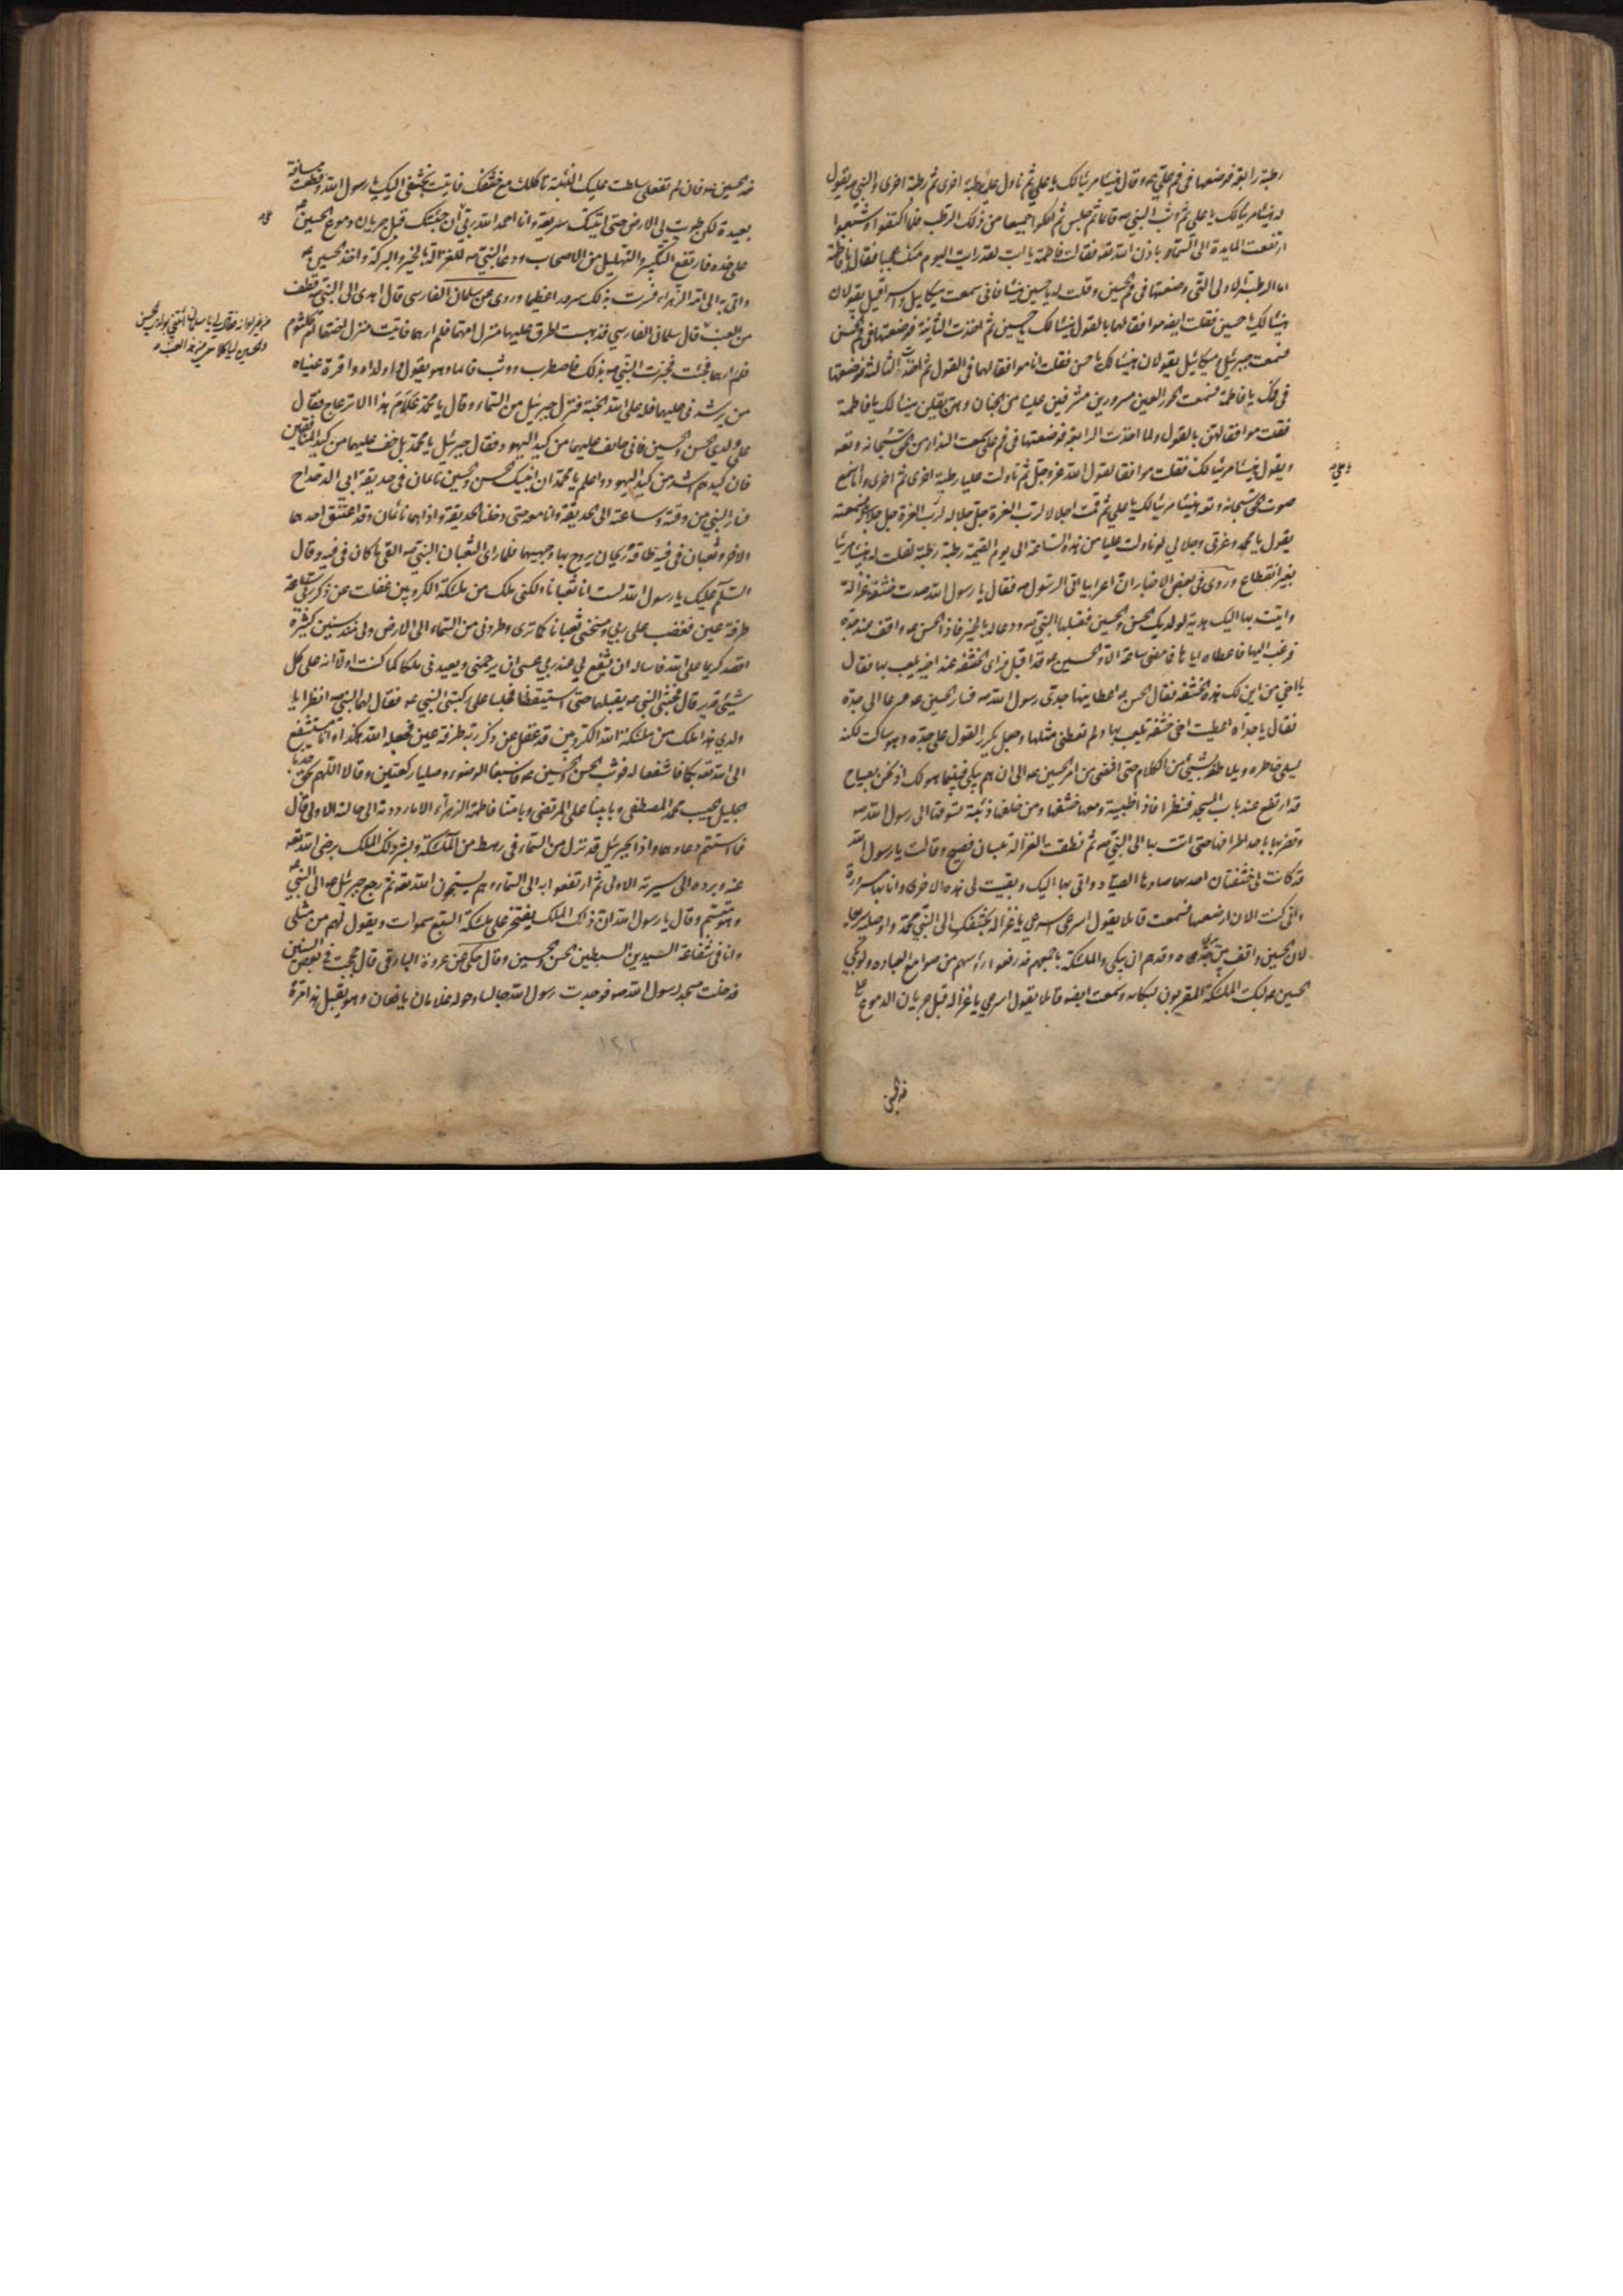 رطبة رابعة فوضعها في فم علي ع وقال هنيئا مريئا لك يا علي ثم ناول عليا رطبة اخرى ثم رطبة اخرى والنبي ص يقول
له هنيئا مريئا لك يا علي ثم وثب النبي ص قائما ثم جلس ثم اكلوا جميعا من ذلك الرطب فلما اكتفوا وشبعوا
ارتفعت المايدة الى السماء باذن الله تعه فقالت فاطمة يا ابت لقد رايت اليوم منك عجبا فقال يا فاطمة
اما الرطبة الاولى التي وضعتها في فم الحسين وقلت له يا حسين هنيئا فاني سمعت ميكاييل واسرافيل يقولان
هنيئا لك يا حسين فقلت ايضه موافقا لهما بالقول هنيئا لك يا حسين ثم اخذت الثانية فوضعتها في فم الحسن
فسمعت جبرئيل وميكائيل يقولان هنيئا لك يا حسن فقلت انا موافقا لهما في القول ثم اخذت الثالثة فوضعتها
في فمك يا فاطمة فسمعت الحور العين مسرورين مشرفين علينا من الجنان وهن يقلن هنيئا لك يا فاطمة
فقلت موافقا لهن بالقول ولما اخذت الرابعة فوضعتها في فم علي سمعت النداء من الحق سبحانه وتعه
ويقول هنيئا مريئا لك فقلت موافقا لقول الله عز وجل ثم ناولت عليا رطبة اخرى ثم اخرى وانا اسمع
صوت الحق سبحانه وتعه هنيئا مريئا لك يا علي ثم قمت اجلالا لرب العزة جل جلاله لرب العزة جل جلاله فسمعته
يقول يا محمد وعزتي وجلالي لو ناولت عليا من هذه الساعة الى يوم القيمة رطبة رطبة لقلت له هنيئا مريئا
بغير انقطاع وروى في بعض الاخبار ان اعرابيا اتى الرسول ص فقال يا رسول الله صدت خشفة غزالة
واتيت بها اليك هدية لولديك الحسن والحسين فقبلها النبي ص ودعا له بالخير فاذا الحسن ع واقف عند جده
فرغب اليها فاعطاه اياها فما مضى ساعة الا والحسين ع قد اقبل فراى الخشفة عند اخيه يلعب بها فقال
يا اخي من اين لك هذه الخشفة فقال الحسن ع اعطانيها جدي رسول الله ص فسار الحسين ع مسرعا الى جده
فقال يا جداه اعطيت اخي خشفة يلعب بها ولم تعطني مثلها وجعل يكرر القول على جده وهو ساكت لكنه
يسلي خاطره ويلاطفه بشيء من الكلام حتى افضى من امر الحسين ع الى ان هم يبكي فبينما هو كذلك اذ نحن بصياح
قد ارتفع عند باب المسجد فنظرنا فاذا ظبية ومعها خشفها ومن خلفها ذئبة تسوقها الى رسول الله ص
وتضربها باحد اطرافها حتى اتت بها الى النبي ص ثم نطقت الغزالة بلسان فصيح وقالت يا رسول الله
قد كانت لي خشفتان احدهما صادها الصياد واتى بها اليك وبقيت لي هذه الاخرى وانا بها مسرورة
واني كنت الان ارضعها فسمعت قائلا يقول اسرعي اسرعي يا غزالة بخشفك الى النبي محمد واوصليه سريعا
لان الحسين واقف بين يدي جده وقد هم ان يبكي والملئكة باجمعهم قد رفعوا رؤسهم من صوامع العبادة ولو بكى
الحسين ع لبكت الملئكة المقربون لبكائه وسمعت ايضه قائلا يقول اسرعي يا غزالة قبل جريان الدموع على
خد الحسين
خد الحسين ع فان لم تفعلي سلطت عليك الذئبة تاكلك مع خشفك فاتيت بخشفي اليك يا رسول الله وقطعت مسافة
بعيدة لكن طويت لي الارض حتى اتيتك سريعة وانا احمد الله ربي ان جئتك قبل جريان دموع الحسين ع
على خده فارتفع التكبير والتهليل من الاصحاب ودعا النبي ص للغزالة بالخير والبركة واخذ الحسين ع
واتى به الى امه الزهراء فسرت بذلك سرورا عظيما وروى عن سلمان الفارسي قال اهدي الى النبي ص قطف
من العنب قال سلمان الفارسي فذهبت اطرق عليهما منزل امهما فلم ارهما فاتيت منزل اختهما ام كلثوم
فلم ارهما فجئت فخبرت النبي ص بذلك فاضطرب ووثب قائما وهو يقول وا ولداه وا قرة عيناه
من يرشدني عليهما فله على الله الجنة فنزل جبرئيل من السماء وقال يا محمد علام هذا الانزعاج فقال
على ولدي الحسن والحسين فاني خائف عليهما من كيد اليهود فقال جبرئيل يا محمد بل خف عليهما من كيد المنافقين
فان كيدهم اشد من كيد اليهود واعلم يا محمد ان ابنيك الحسن والحسين نائمان في حديقة ابي الدحداح
فسار النبي من وقته وساعته الى الحديقة وانا معه حتى دخلنا الحديقة واذا هما نائمان وقد اعتنق احدهما
الاخر وثعبان في فيه طاقة ريحان يروح بها وجهيهما فلما راى الثعبان النبي ص القى ما كان في فيه وقال
السلام عليك يا رسول الله لست انا ثعبانا ولكني ملك من ملئكة الكروبين غفلت عن ذكر ربي ساعة
طرفة عين فغضب علي ربي ومسخني ثعبانا كما ترى وطردني من السماء الى الارض ولي منذ سنين كثيرة
اقصد كريما على الله فاساله ان يشفع لي عند ربي عسى ان يرحمني ويعيدني ملكا كما كنت اولا انه على كل
شيئ قدير قال فجثى النبي ص يقبلهما حتى استيقظا فجلسا على ركبتي النبي ص فقال لهما النبي ص انظرا يا
ولدي هذا ملك من ملئكة الله الكروبين قد غفل عن ذكر ربه طرفة عين فجعله الله هكذا وانا مستشفع
الى الله تعه بكما فاشفعا له فوثب الحسن والحسين ع فاسبغا الوضوء وصليا ركعتين وقالا اللهم بحق جدنا
الجليل الحبيب محمد المصطفى وبابينا علي المرتضى وبامنا فاطمة الزهراء الا ما رددته الى حالته الاولى قال
فما استتم دعاءهما واذا بجبرئيل قد نزل من السماء في رهط من الملئكة وبشر ذلك الملك برضى الله تعه
عنه وبرده الى سيرته الاولى ثم ارتفعوا به الى السماء وهم يسبحون الله تعه ثم رجع جبرئيل ع الى النبي ص
وهو متبسم وقال يا رسول الله ان ذلك الملك يفتخر على ملئكة السبع سموات ويقول لهم من مثلي
وانا في شفاعة السيدين السبطين الحسن والحسين وقال حكى عن عروة البارقي قال حججت في بعض السنين
فدخلت مسجد رسول الله ص فوجدت رسول الله جالسا وحوله غلامان يافعان وهو يقبل هذا مرة
في غير اوانه فقال لي يا سلمان ائتني بولدي الحسن
والحسين لياكلا معي من هذا العنب
١٢٢